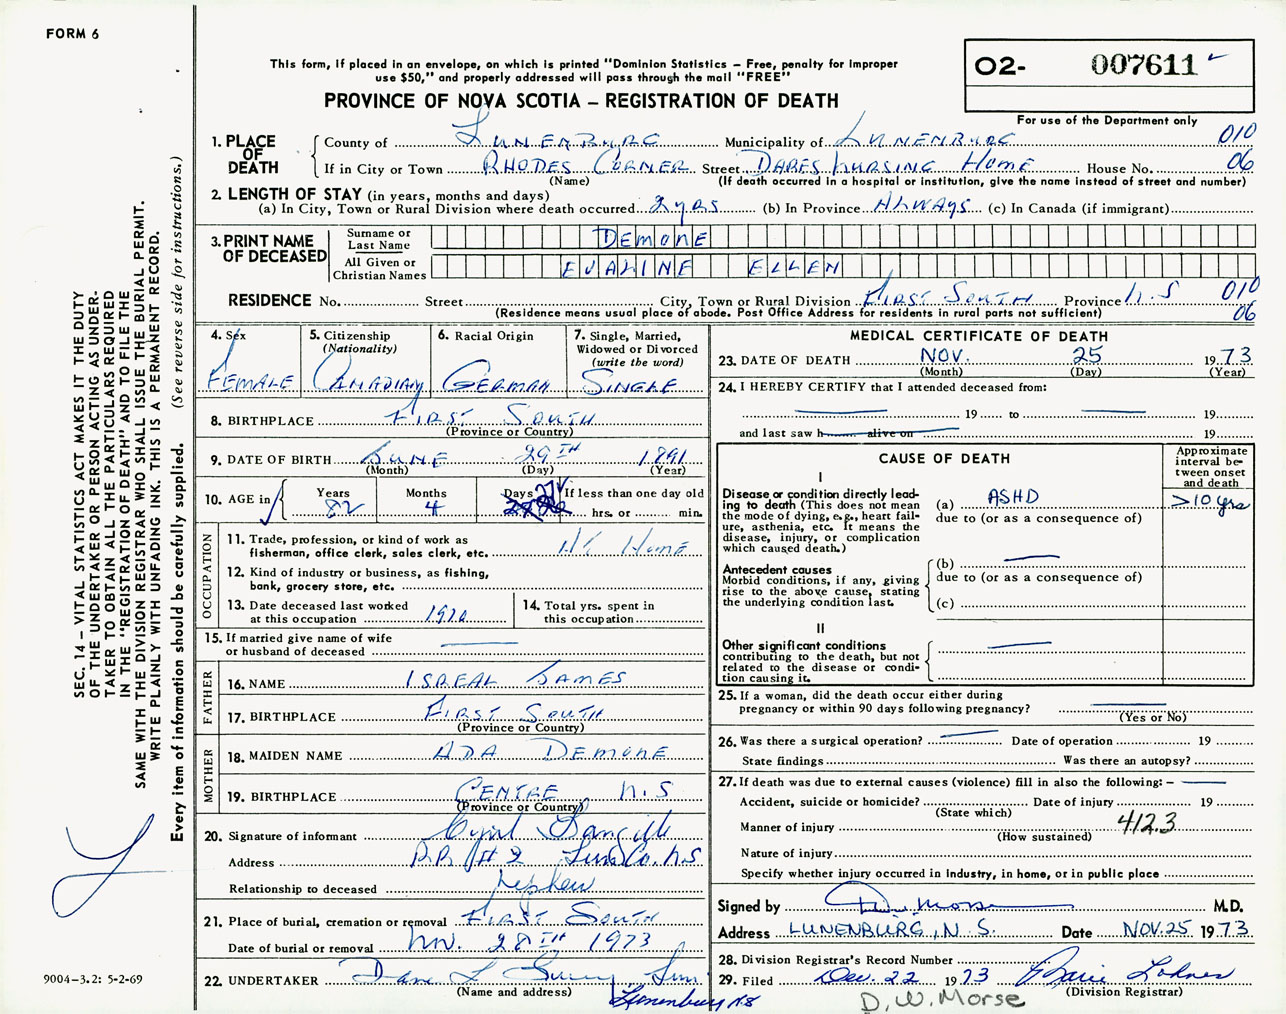 FORM 6
This form, if placed in an envelope, on which is printed "Dominion Statistics – Free, penalty for improper
use $50," and properly addressed will pass through the mail "FREE"
PROVINCE OF NOVA SCOTIA – REGISTRATION OF DEATH
O2- 007611
For use of the Department only
1. PLACE OF DEATH County of LUNENBURG Municipality of LUNENBURG 010
If in City or Town RHODES CORNER Street DARES NURSING HOME House No. 06
(Name) (If death occurred in a hospital or institution, give the name instead of street and number)
2. LENGTH OF STAY (in years, months and days)
(a) In City, Town or Rural Division where death occurred 2 yrs (b) In Province ALWAYS (c) In Canada (if immigrant)
3. PRINT NAME OF DECEASED
Surname or Last Name DEMONE
All Given or Christian Names EVALINE ELLEN
RESIDENCE No. Street City, Town or Rural Division FIRST SOUTH Province N.S 010
(Residence means usual place of abode. Post Office Address for residents in rural parts not sufficient) 06
4. Sex 5. Citizenship (Nationality) 6. Racial Origin 7. Single, Married, Widowed or Divorced (write the word)
FEMALE CANADIAN GERMAN SINGLE
8. BIRTHPLACE FIRST SOUTH
(Province or Country)
9. DATE OF BIRTH JUNE 29TH 1891
(Month) (Day) (Year)
10. AGE in Years Months Days If less than one day old
82 4 27 hrs. or min.
OCCUPATION
11. Trade, profession, or kind of work as
fisherman, office clerk, sales clerk, etc. AT HOME
12. Kind of industry or business, as fishing,
bank, grocery store, etc.
13. Date deceased last worked
at this occupation 1970
14. Total yrs. spent in
this occupation
15. If married give name of wife
or husband of deceased
FATHER
16. NAME ISREAL JAMES
17. BIRTHPLACE FIRST SOUTH
(Province or Country)
MOTHER
18. MAIDEN NAME ADA DEMONE
19. BIRTHPLACE CENTRE N.S
(Province or Country)
20. Signature of informant Cyril Langille
Address RR #2 Lun. Co. N.S
Relationship to deceased Nephew
21. Place of burial, cremation or removal FIRST SOUTH
Date of burial or removal Nov. 28TH 1973
22. UNDERTAKER Sons
(Name and address) Lunenburg NS
MEDICAL CERTIFICATE OF DEATH
23. DATE OF DEATH NOV. 25 1973
(Month) (Day) (Year)
24. I HEREBY CERTIFY that I attended deceased from:
19 to 19
and last saw h alive on 19
CAUSE OF DEATH
Approximate interval be-
tween onset
and death
I
Disease or condition directly lead-
ing to death (This does not mean
the mode of dying, e.g., heart fail-
ure, asthenia, etc. It means the
disease, injury, or complication
which caused death.)
(a) ASHD >10 yrs
due to (or as a consequence of)
Antecedent causes
Morbid conditions, if any, giving
rise to the above cause, stating
the underlying condition last.
(b)
due to (or as a consequence of)
(c)
II
Other significant conditions
contributing to the death, but not
related to the disease or condi-
tion causing it.
25. If a woman, did the death occur either during
pregnancy or within 90 days following pregnancy?
(Yes or No)
26. Was there a surgical operation? Date of operation 19
State findings Was there an autopsy?
27. If death was due to external causes (violence) fill in also the following: –
Accident, suicide or homicide? Date of injury 19
(State which)
Manner of injury 412.3
(How sustained)
Nature of injury
Specify whether injury occurred in industry, in home, or in public place
Signed by D.W. Morse M.D.
Address LUNENBURG, N.S. Date NOV. 25 1973
28. Division Registrar's Record Number
29. Filed Dec. 22 1973 Lohnes
(Division Registrar)
D. W. Morse
SEC. 14 – VITAL STATISTICS ACT MAKES IT THE DUTY
OF THE UNDERTAKER OR PERSON ACTING AS UNDER-
TAKER TO OBTAIN ALL THE PARTICULARS REQUIRED
IN THE "REGISTRATION OF DEATH" AND TO FILE THE
SAME WITH THE DIVISION REGISTRAR WHO SHALL ISSUE THE BURIAL PERMIT.
WRITE PLAINLY WITH UNFADING INK. THIS IS A PERMANENT RECORD.
Every item of information should be carefully supplied. (See reverse side for instructions.)
9004-3.2: 5-2-69